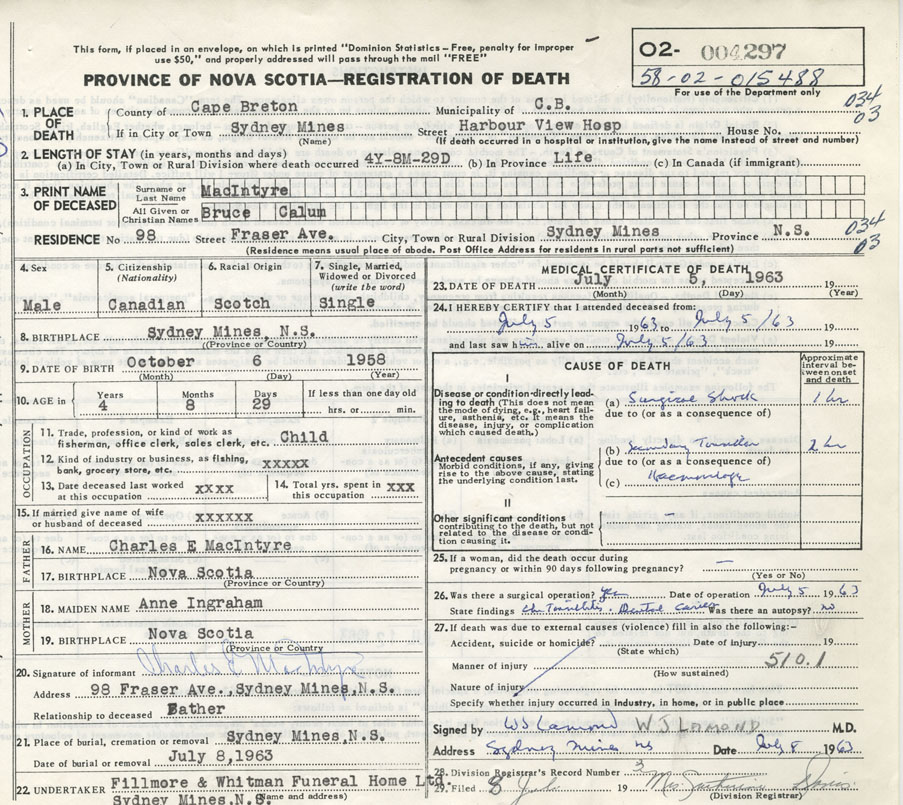 This form, if placed in an envelope, on which is printed "Dominion Statistics – Free, penalty for improper
use $50," and properly addressed will pass through the mail "FREE"
PROVINCE OF NOVA SCOTIA—REGISTRATION OF DEATH
02- 004297
58-02-015488
For use of the Department only
034
03
1. PLACE OF DEATH County of Cape Breton Municipality of C.B.
If in City or Town Sydney Mines Street Harbour View Hosp House No.
(Name) (If death occurred in a hospital or institution, give the name instead of street and number)
2. LENGTH OF STAY (in years, months and days)
(a) In City, Town or Rural Division where death occurred 4Y-8M-29D (b) In Province Life (c) In Canada (if immigrant)
3. PRINT NAME OF DECEASED Surname or Last Name MacIntyre
All Given or Christian Names Bruce Calum
RESIDENCE No 98 Street Fraser Ave. City, Town or Rural Division Sydney Mines Province N.S.
(Residence means usual place of abode. Post Office Address for residents in rural parts not sufficient)
034
03
4. Sex Male
5. Citizenship (Nationality) Canadian
6. Racial Origin Scotch
7. Single, Married, Widowed or Divorced (write the word) Single
8. BIRTHPLACE Sydney Mines, N.S.
(Province or Country)
9. DATE OF BIRTH October 6 1958
(Month) (Day) (Year)
10. AGE in Years 4 Months 8 Days 29 If less than one day old hrs. or min.
OCCUPATION
11. Trade, profession, or kind of work as
fisherman, office clerk, sales clerk, etc. Child
12. Kind of industry or business, as fishing,
bank, grocery store, etc. xxxxx
13. Date deceased last worked at this occupation xxxx
14. Total yrs. spent in this occupation xxx
15. If married give name of wife
or husband of deceased xxxxxx
FATHER
16. NAME Charles E MacIntyre
17. BIRTHPLACE Nova Scotia
(Province or Country)
MOTHER
18. MAIDEN NAME Anne Ingraham
19. BIRTHPLACE Nova Scotia
(Province or Country)
20. Signature of informant Charles E MacIntyre
Address 98 Fraser Ave.,Sydney Mines,N.S.
Relationship to deceased Father
21. Place of burial, cremation or removal Sydney Mines,N.S.
Date of burial or removal July 8,1963
22. UNDERTAKER Fillmore & Whitman Funeral Home Ltd.
Sydney Mines,N.S.
(Name and address)
MEDICAL CERTIFICATE OF DEATH
23. DATE OF DEATH July 5, 1963 19
(Month) (Day) (Year)
24. I HEREBY CERTIFY that I attended deceased from:
July 5 1963 to July 5/63 19
and last saw him alive on July 5/63 19
CAUSE OF DEATH
Approximate interval between onset and death
I
Disease or condition directly leading to death (This does not mean the mode of dying, e.g., heart failure, asthenia, etc. It means the disease, injury, or complication which caused death.)
(a) Surgical Shock 1 hr
due to (or as a consequence of)
Antecedent causes
Morbid conditions, if any, giving rise to the above cause, stating the underlying condition last.
(b) Secondary Tonsillar 2 hr
due to (or as a consequence of)
(c) Haemorrhage
II
Other significant conditions
contributing to the death, but not related to the disease or condition causing it.
–
25. If a woman, did the death occur during
pregnancy or within 90 days following pregnancy? —
(Yes or No)
26. Was there a surgical operation? Yes Date of operation July 5 1963
State findings Ch Tonsillitis. Dental Caries Was there an autopsy? no
27. If death was due to external causes (violence) fill in also the following:–
Accident, suicide or homicide? Date of injury 19
(State which)
Manner of injury 510.1
(How sustained)
Nature of injury
Specify whether injury occurred in industry, in home, or in public place
Signed by WS Lamond WJ LAMOND M.D.
Address Sydney Mines NS Date July 8 1963
28. Division Registrar's Record Number 3
29. Filed 8 July 19 Mrs
(Division Registrar)